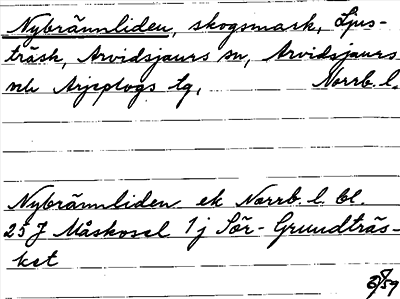 Nybrännliden, skogsmark, Ljus-
träsk, Arvidsjaurs sn, Arvidsjaurs
och Arjeplogs tg, Norrb. l.
Nybrännliden ek Norrb. l. bl.
25 J Måskosel 1 j Sör-Grundträs-
ket